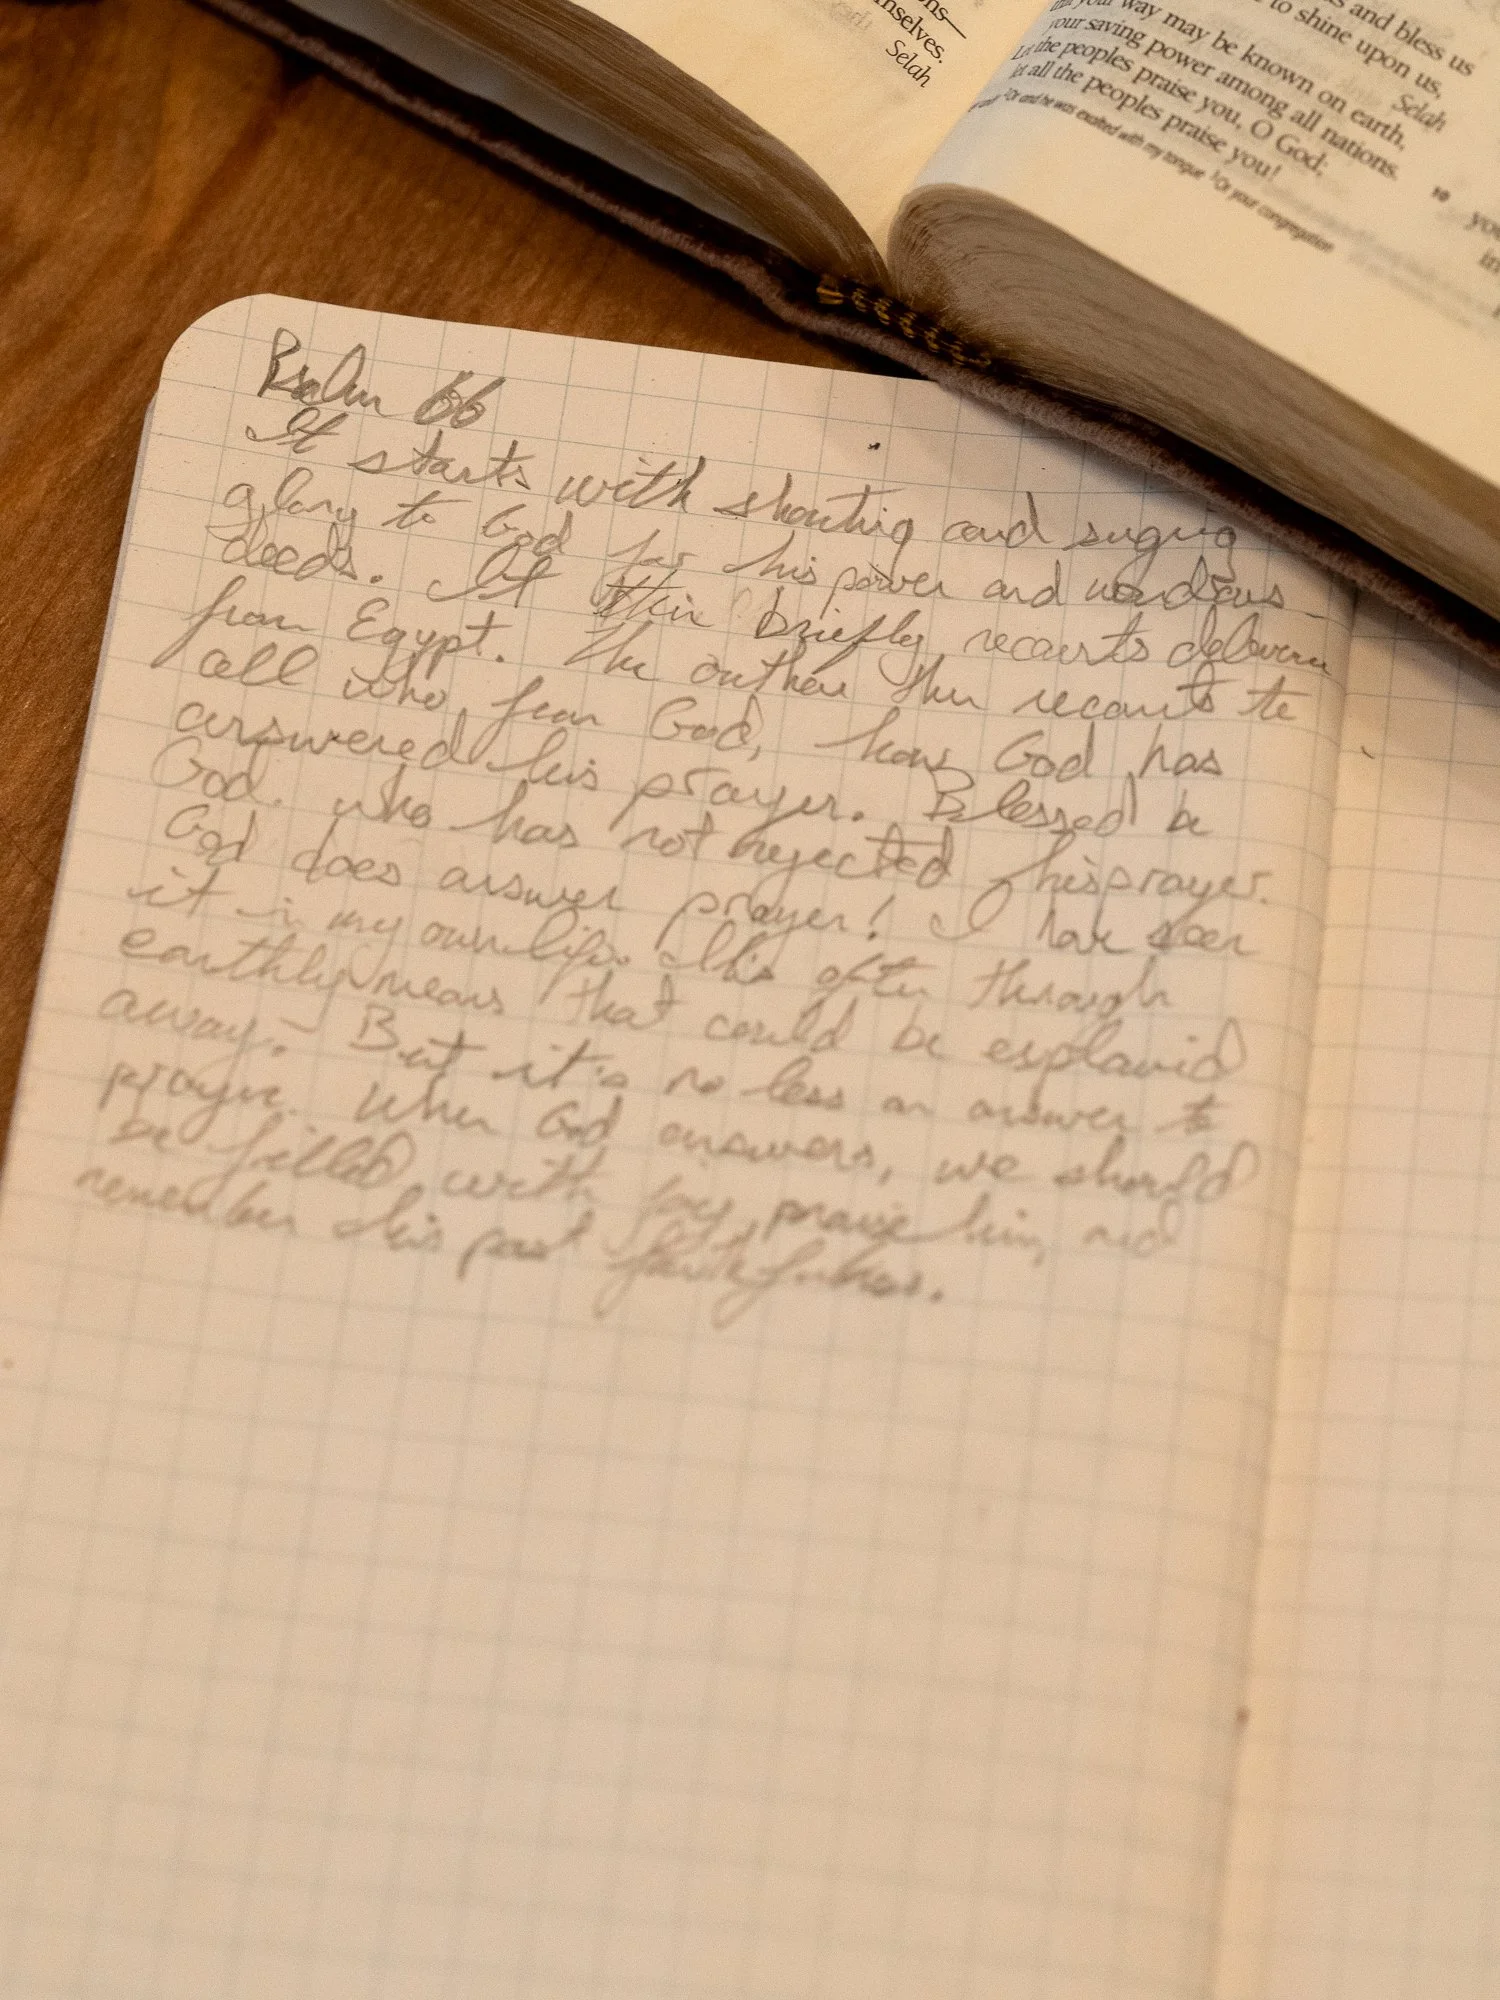 ons—
mselves.
Selah
s and bless us
e to shine upon us,
Selah
that your way may be known on earth,
your saving power among all nations.
Let the peoples praise you, O God;
let all the peoples praise you!
Or and he was exalted with my tongue Or your congregation
10
you
Psalm 66
It starts with shouting and singing
glory to God for his power and wondrous
deeds. It then briefly recounts deliverance
from Egypt. The author then recounts to
all who fear God, how God has
answered his prayer. Blessed be
God. who has not rejected his prayer.
God does answer prayer! I have seen
it in my own life. This often through
earthly means that could be explained
away. But it's no less an answer to
prayer. When God answers, we should
be filled with joy, praise him, and
remember his past faithfulness.